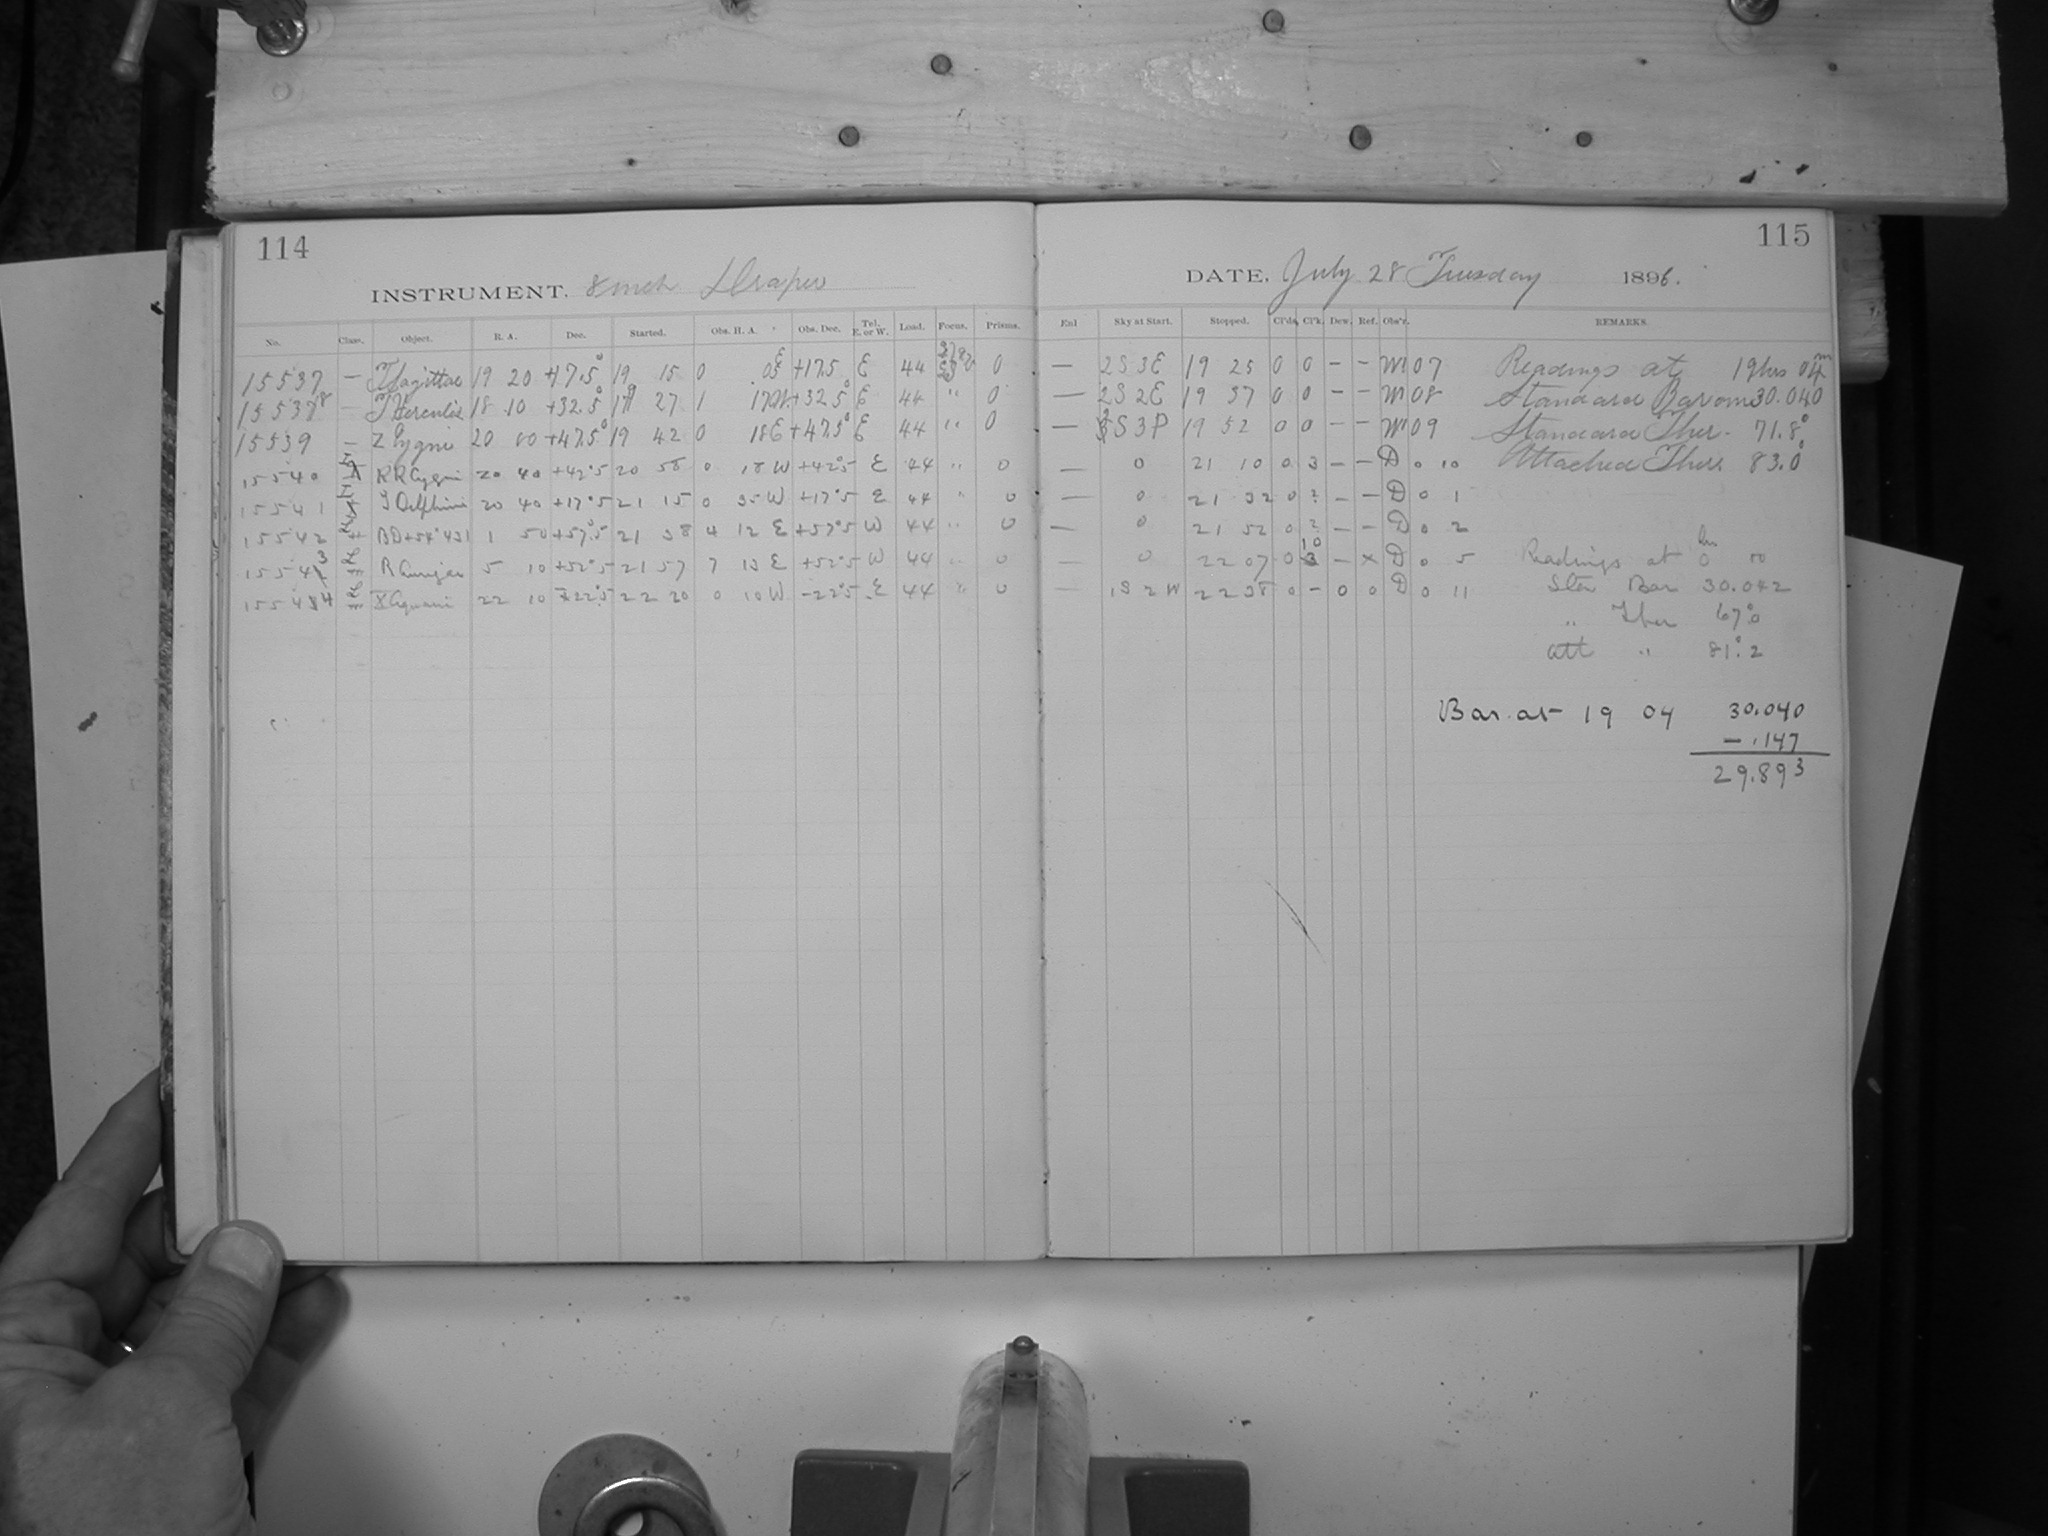 114
115
INSTRUMENT. 8 inch Draper
DATE. July 28 Tuesday 1896.
No. Class. Object. R. A. Dec. Started. Obs. H. A. Obs. Dec. Tel. E. or W. Load. Focus. Prisms. Enl Sky at Start. Stopped. Cl'ds. Cl'k. Dew. Ref. Obs'r. REMARKS.
15537 — T Sagittae 19 20 +17.5° 19 15 0 05 E +17.5 E 44 0 — 2S3E 19 25 0 0 — — M 07 Readings at 19hrs 04m
15538 — T Herculis 18 10 +32.5° 19 27 1 17W +32.5° E 44 " 0 — 2S2E 19 37 0 0 — — M 08 Standard Barom 30.040
15539 — Z Cygni 20 00 +47.5° 19 42 0 18E +47.5° E 44 " 0 — 3S3P 19 52 0 0 — — M 09 Standard Ther. 71.8°
15540 RR Cygni 20 40 +42°.5 20 58 0 18 W +42°.5 E 44 " 0 — 0 21 10 0 3 — — D 0 10 Attached Ther. 83.0°
15541 T Delphini 20 40 +17°.5 21 15 0 35 W +17°.5 E 44 " 0 — 0 21 32 0 2 — — D 0 1
15542 BD+54°431 1 50 +57°.5 21 38 4 12 E +57°.5 W 44 " 0 — 0 21 52 0 2 — — D 0 2
15543 R Aurigae 5 10 +52°.5 21 57 7 13 E +52°.5 W 44 " 0 — 0 22 07 0 10 3 — x D 0 5 Readings at 0 hr 00
15544 X Aquarii 22 10 -22°.5 22 20 0 10 W -22°.5 E 44 " 0 — 1S2W 22 38 0 - 0 0 D 0 11 Stan Bar 30.042
" Ther 67°.0
att " 81°.2
Bar. at 19 04 30.040
- .147
29.893